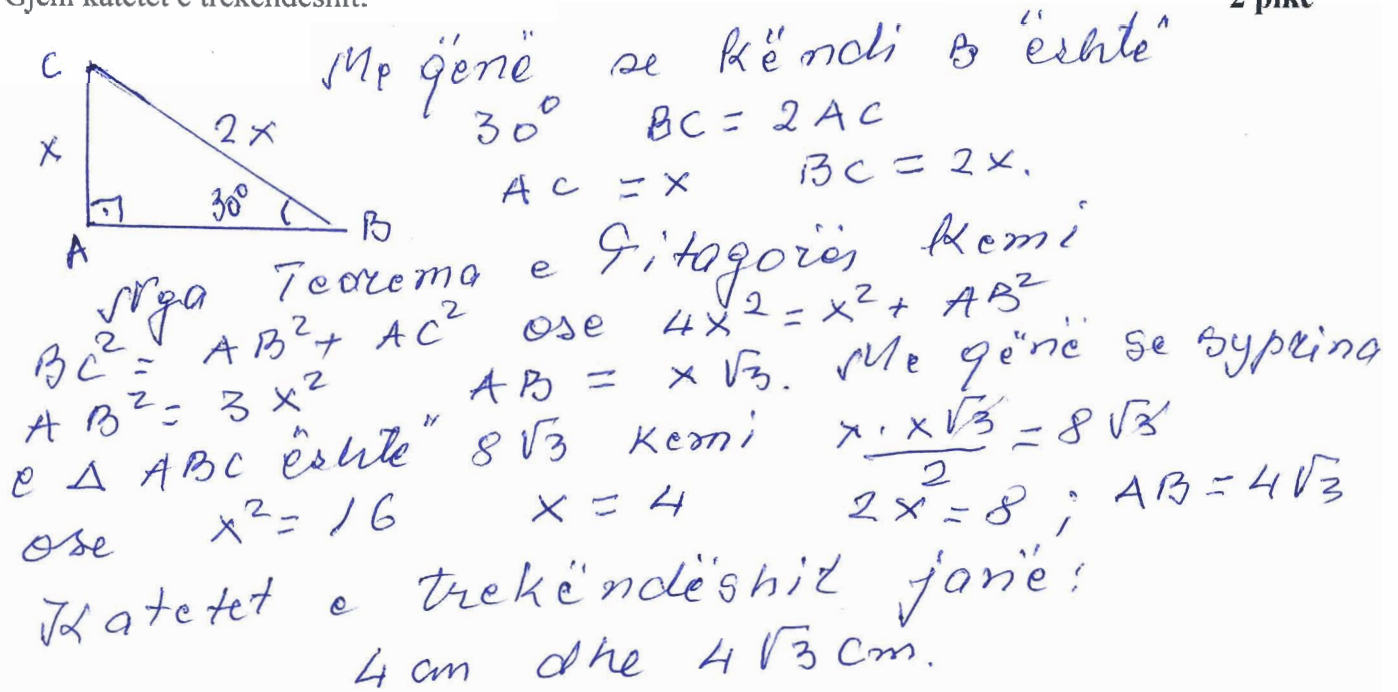 Gjeni katetet e trekëndëshit.
2 pikë
C
x
2x
30°
A
B
Me qënë se këndi B është
30° BC = 2AC
AC = x BC = 2x.
Nga Teorema e Pitagorës kemi
BC² = AB² + AC² ose 4x² = x² + AB²
AB² = 3x² AB = x√3. Me qënë se syprina
e Δ ABC është 8√3 kemi x·x√3/2 = 8√3
ose x² = 16 x = 4 2x = 8 ; AB = 4√3
Katetet e trekëndëshit janë:
4 cm dhe 4√3 cm.